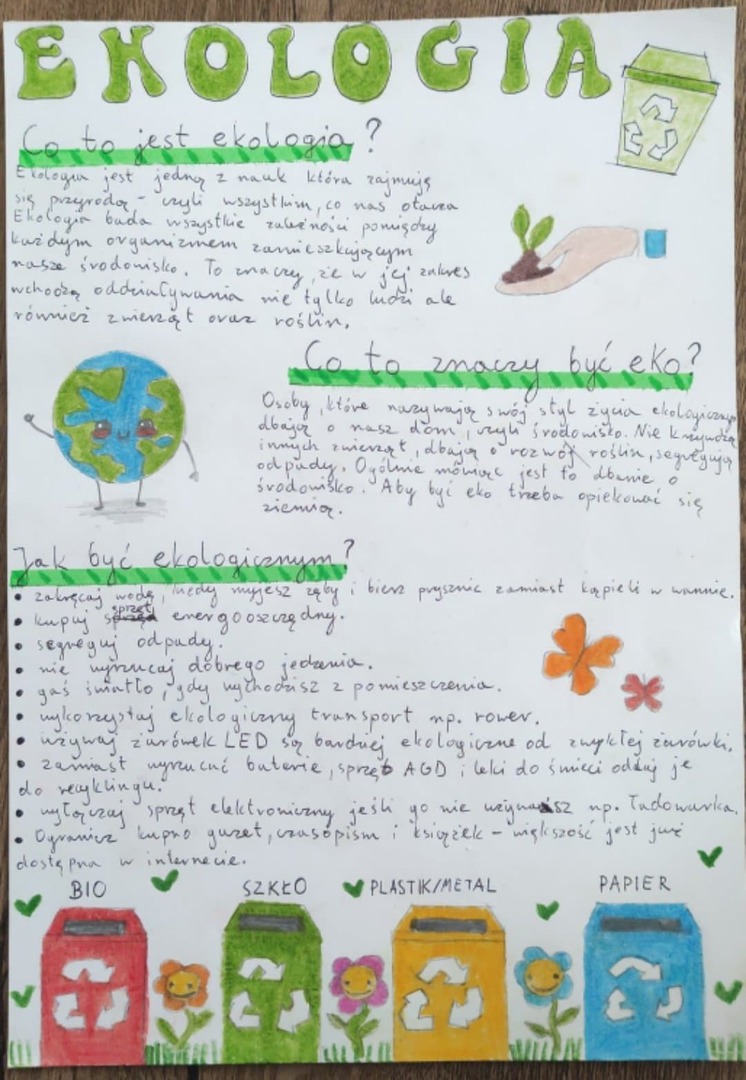 EKOLOGIA
Co to jest ekologia?
Ekologia jest jedną z nauk która zajmują
się przyrodą - czyli wszystkim, co nas otacza
Ekologia bada wszystkie zależności pomiędzy
każdym organizmem zamieszkującym
nasze środowisko. To znaczy, że w jej zakres
wchodzą oddziaływania nie tylko ludzi ale
również zwierząt oraz roślin.
Co to znaczy być eko?
Osoby, które nazywają swój styl życia ekologicznym
dbają o nasz dom, czyli środowisko. Nie krzywdzą
innych zwierząt, dbają o rozwój roślin, segregują
odpady. Ogólnie mówiąc jest to dbanie o
środowisko. Aby być eko trzeba opiekować się
ziemią.
Jak być ekologicznym?
• zakręcaj wodę, kiedy myjesz zęby i bierz prysznic zamiast kąpieli w wannie.
• kupuj sprzęty energooszczędny.
• segreguj odpady.
• nie wyrzucaj dobrego jedzenia.
• gaś światło, gdy wychodzisz z pomieszczenia.
• wykorzystaj ekologiczny transport np. rower.
• używaj żarówek LED są bardziej ekologiczne od zwykłej żarówki.
• zamiast wyrzucać baterie, sprzęt AGD i leki do śmieci oddaj je
do recyklingu.
• wyłączaj sprzęt elektroniczny jeśli go nie używasz np. ładowarka.
• Ogranicz kupno gazet, czasopism i książek - większość jest już
dostępna w internecie.
BIO SZKŁO PLASTIK/METAL PAPIER